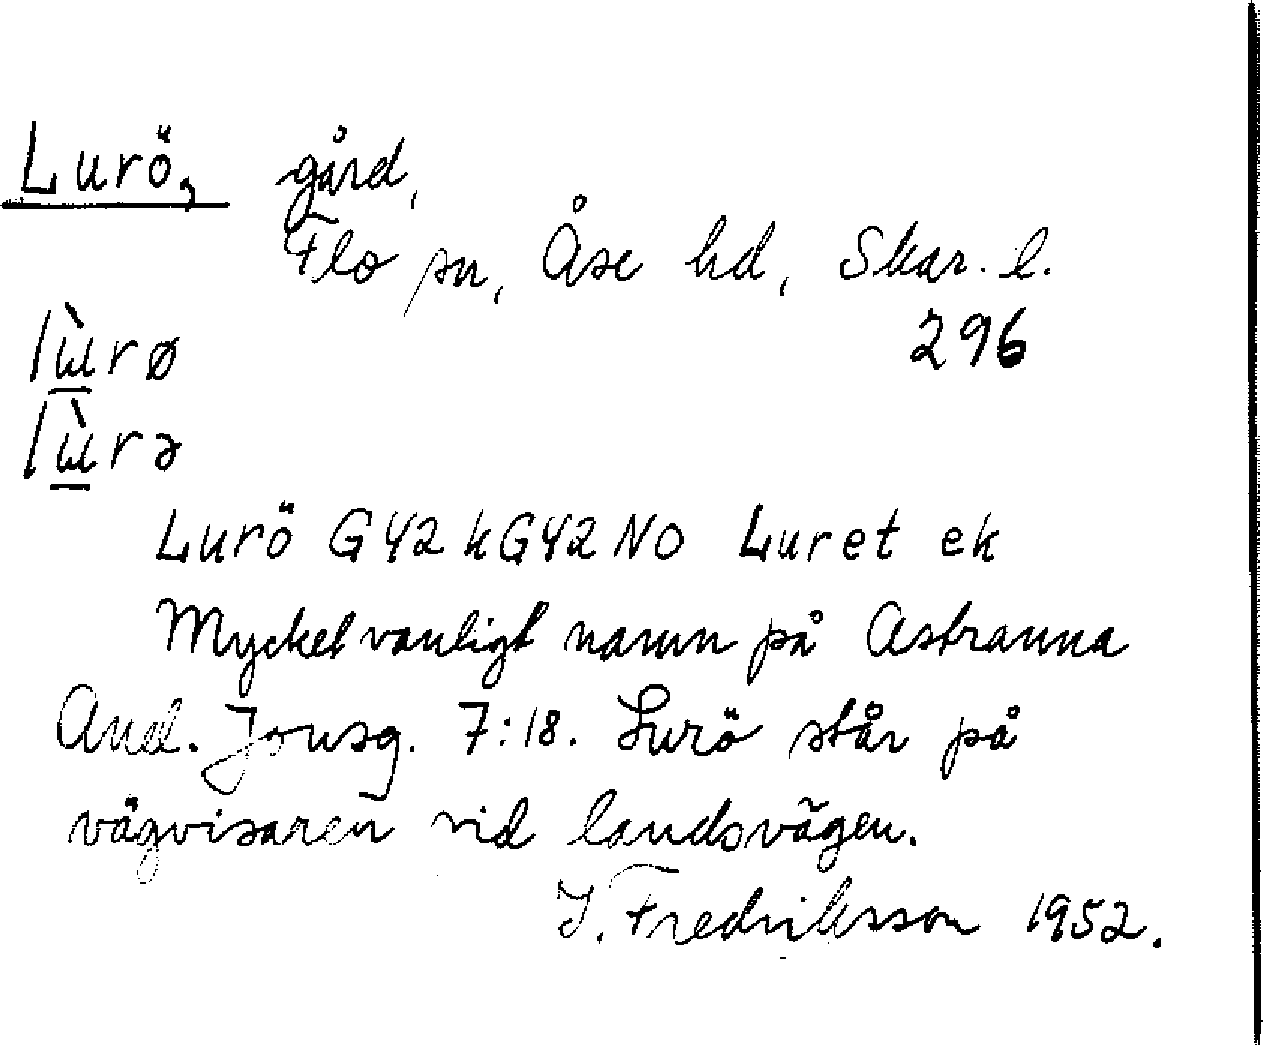 Lurö, gård,
Flo sn, Åse hd, Skar. l.
296
lùrø
lùrə
Lurö G42 kG42NO Luret ek
Mycket vanligt namn på Astranna
And. Jonsg. 7:18. Lurö står på
vägvisaren vid landsvägen.
I. Fredriksson 1952.